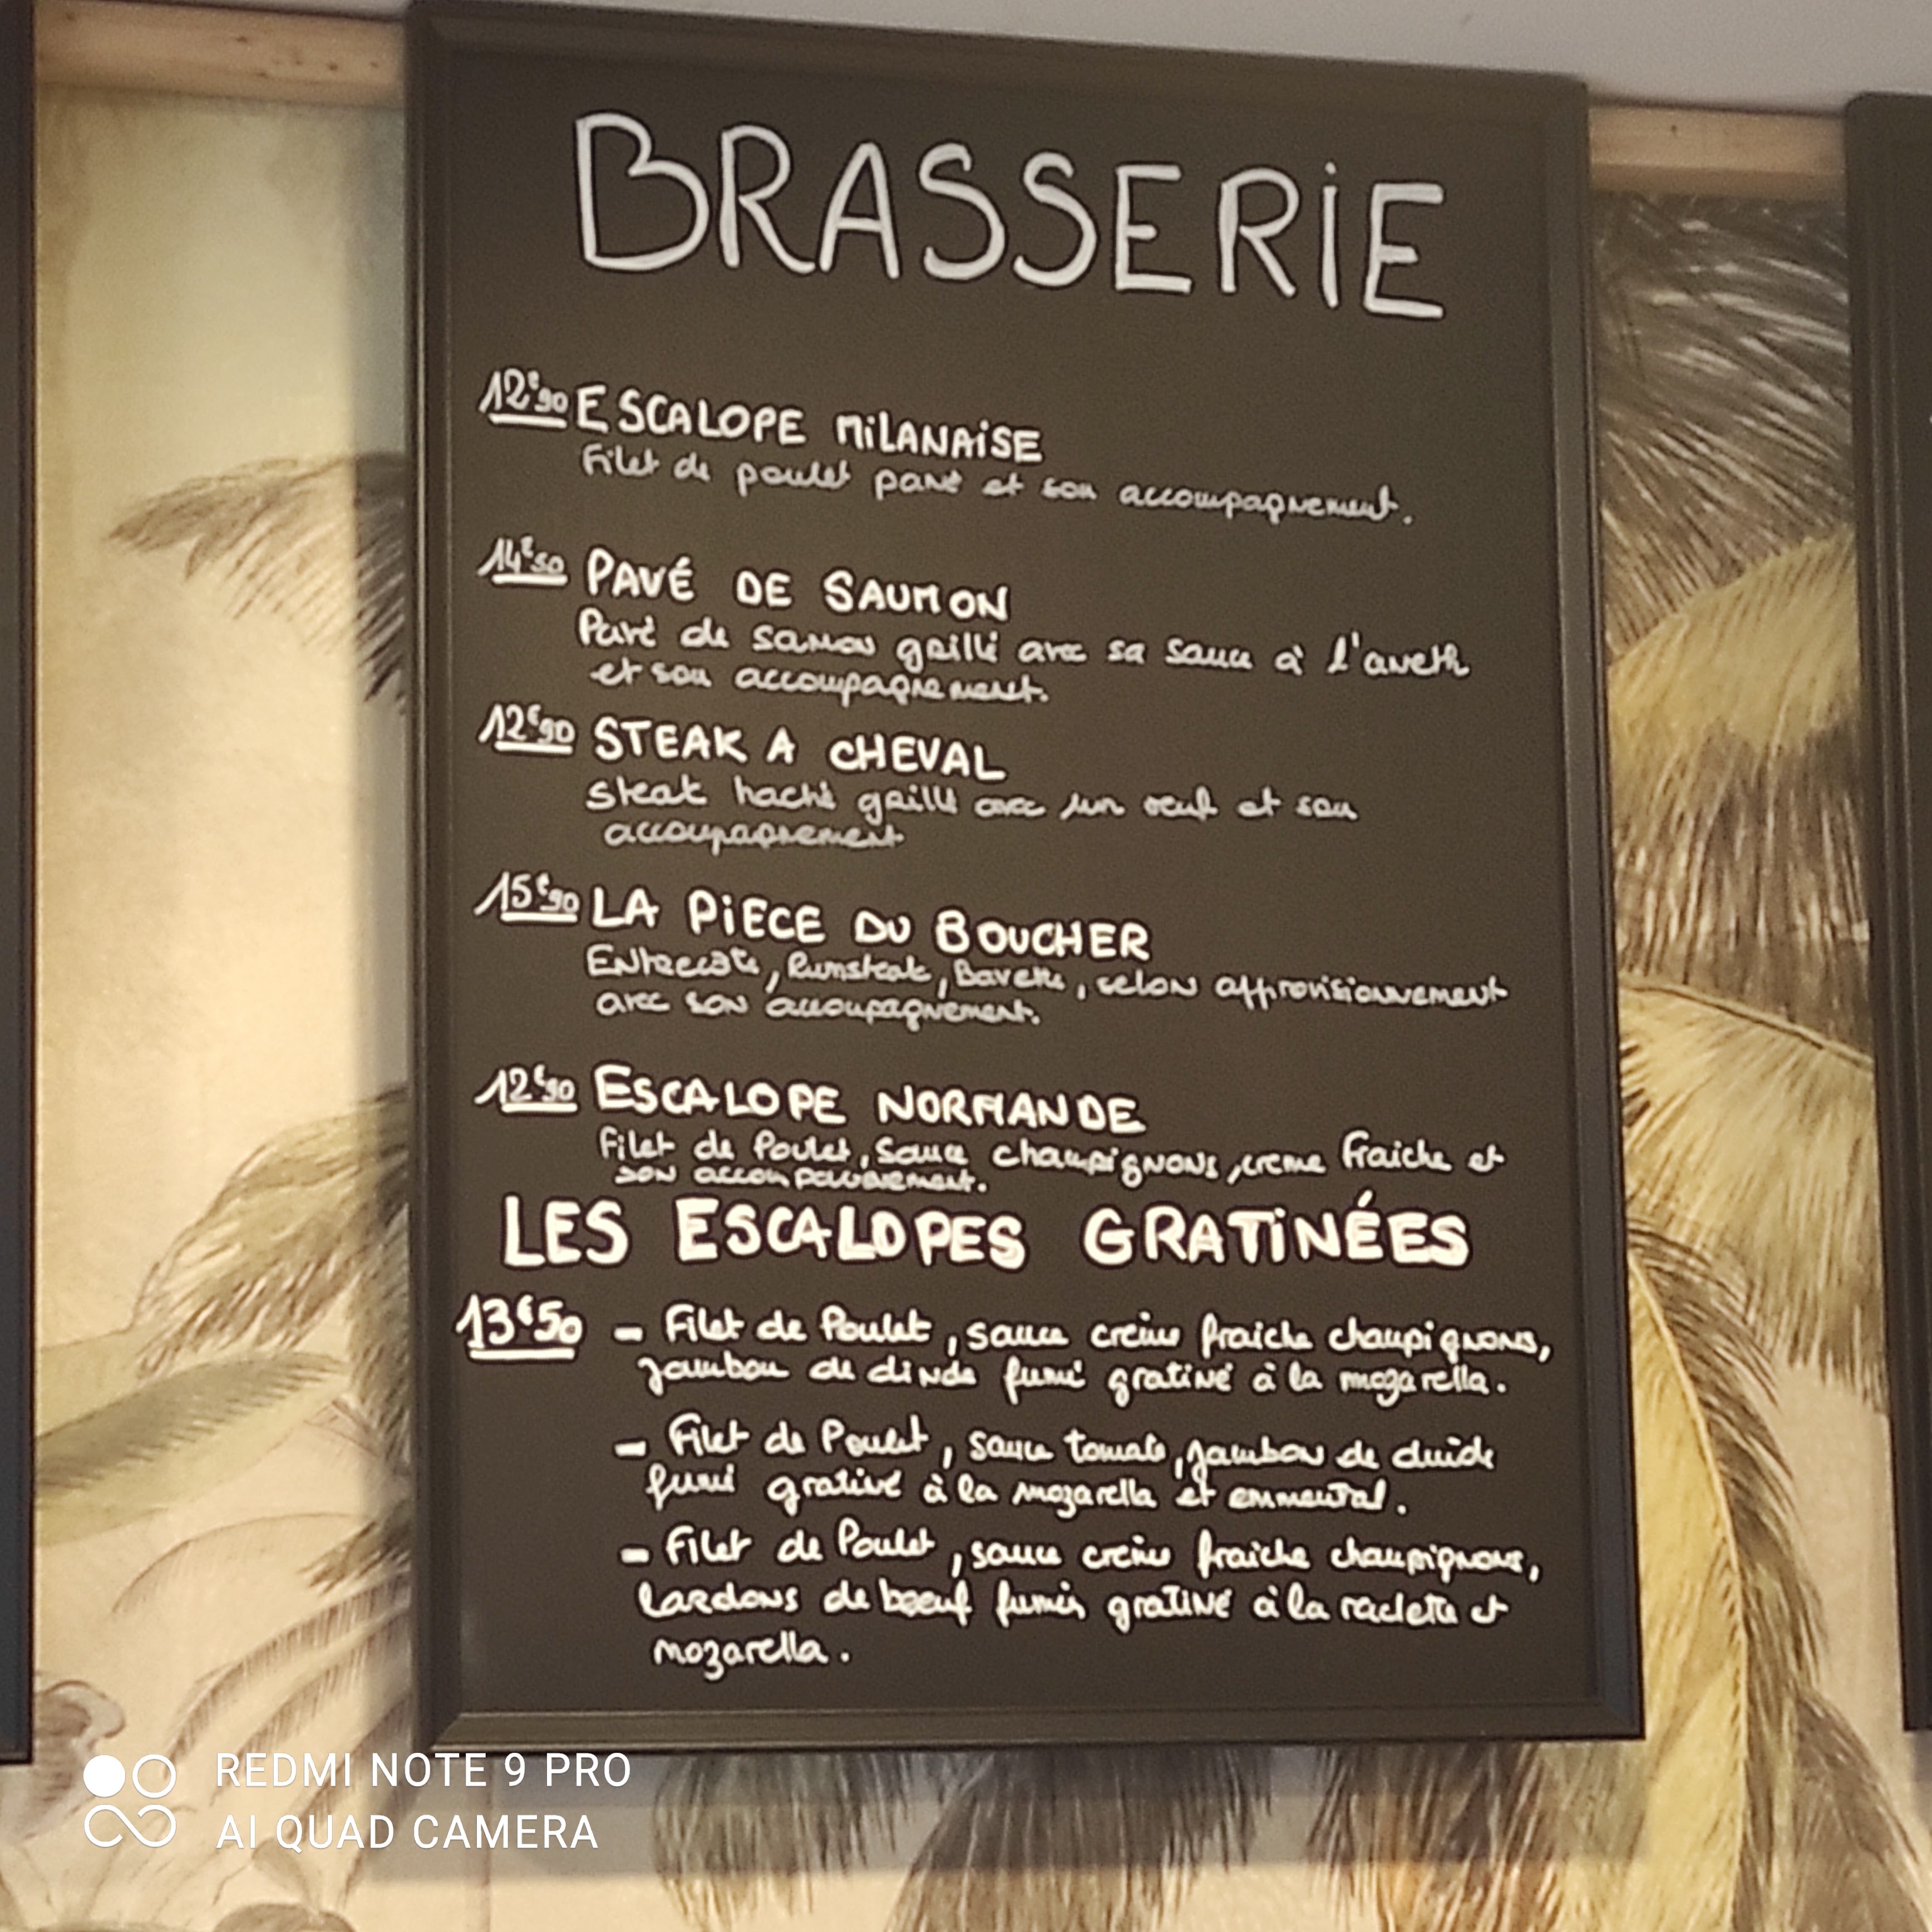 BRASSERiE
12€90 ESCALOPE MiLANAiSE
Filet de poulet pané et son accompagnement.
14€50 PAVÉ DE SAUMON
Pavé de samon grillé avec sa sauce à l'aneth
et son accompagnement.
12€90 STEAK A CHEVAL
Steak haché grillé avec un oeuf et son
accompagnement
15€90 LA PiECE DU BOUCHER
Entrecote, Rumsteak, Bavette, selon approvisionnement
avec son accompagnement.
12€90 ESCALOPE NORMANDE
Filet de Poulet, Sauce champignons, creme fraiche et
son accompagnement.
LES ESCALOPES GRATiNÉES
13€50 - Filet de Poulet, sauce crème fraiche champignons,
jambon de dinde fumé gratiné à la mozarella.
- Filet de Poulet, sauce tomate, jambon de dinde
fumé gratiné à la mozarella et emmental.
- Filet de Poulet, sauce crème fraiche champignons,
lardons de boeuf fumés gratiné à la raclette et
mozarella.
REDMI NOTE 9 PRO
AI QUAD CAMERA